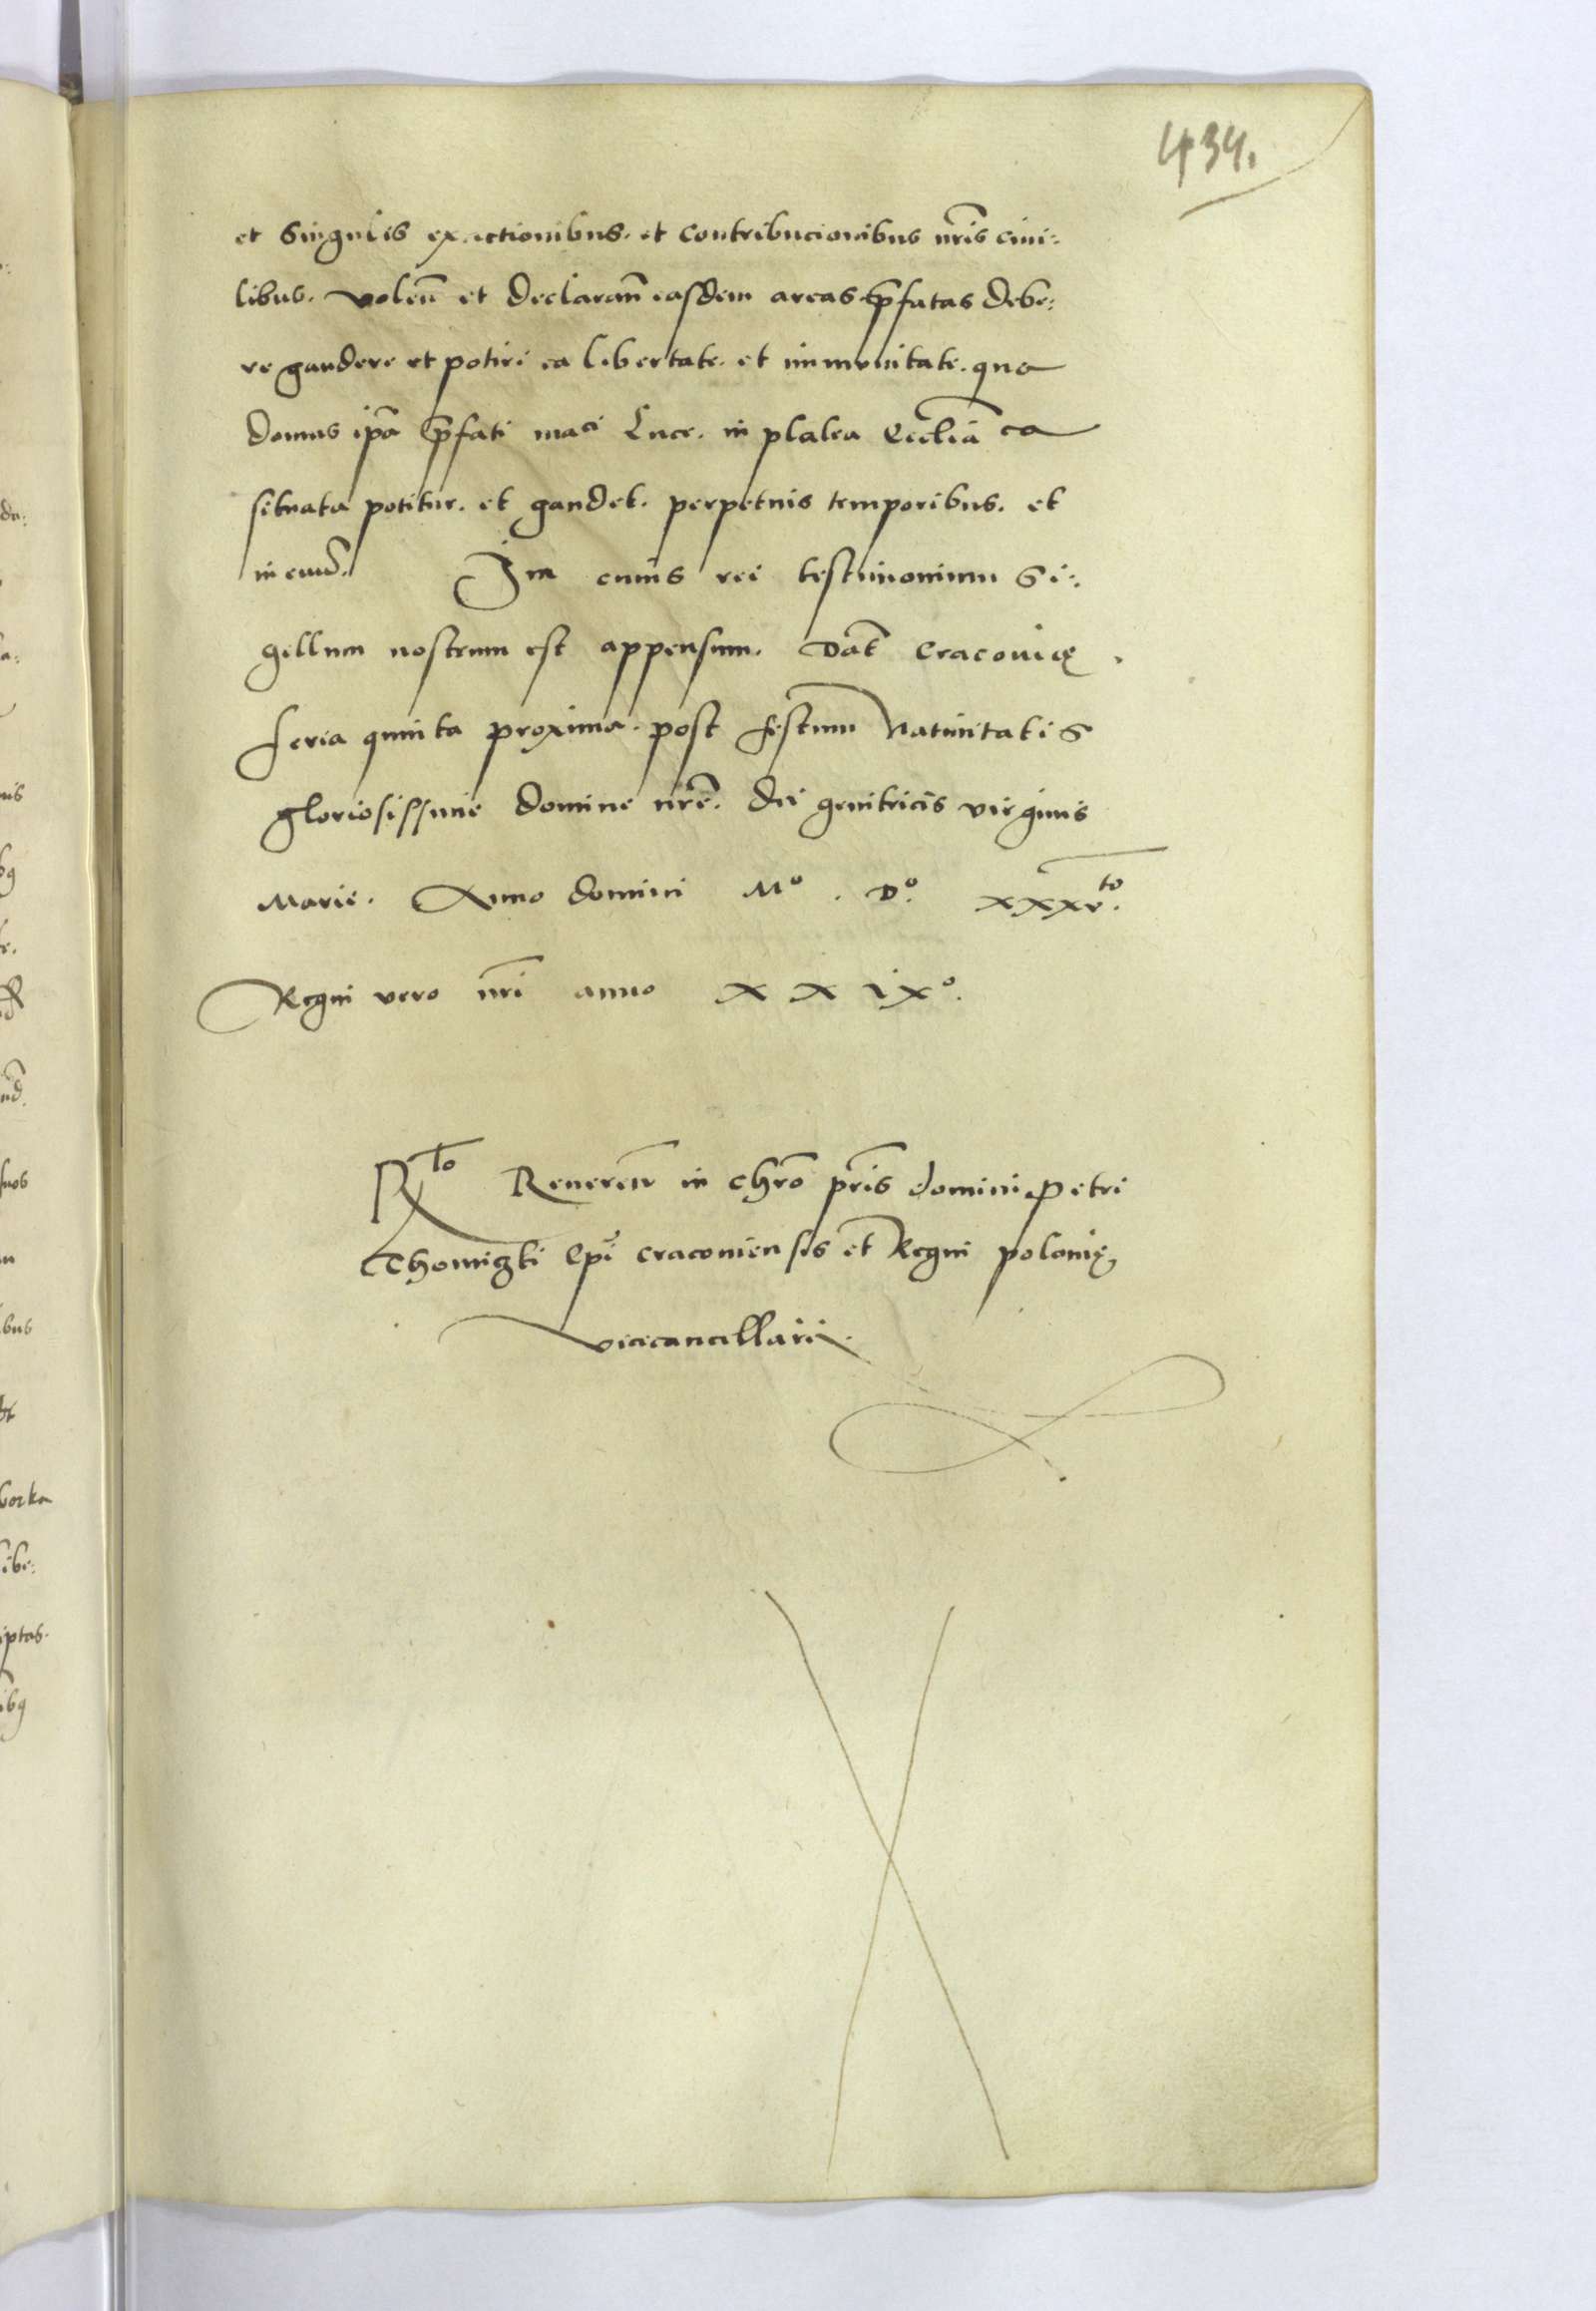 434.
et singulis exactionibus. et contribucionibus nr̃is ciui:
libus. volen̄ et declaran̄ easdem areas p̄fatas debe:
re gaudere et potiri ea libertate. et immunitate. qua
domus ip̄a p̄fati maci Luce. in platea
situata potitur. et gaudet. perpetuis temporibus. et
in euum̄. In cuius rei testimonium si:
gillum nostrum est appensum. Dat̄ Cracouię.
feria quinta proxima. post festum Natiuitatis
gloriosissime domine nr̃e. dei genitricis virginis
Marie. Anno domini Mº. Dº. xxxvto.
Regni vero nr̃i anno xxixº.
Rto Reueren̄ in chr̃o pr̃is domini Petri
Thomiczki Ep̄i cracouiensis et Regni polonię
vicecancellarii.